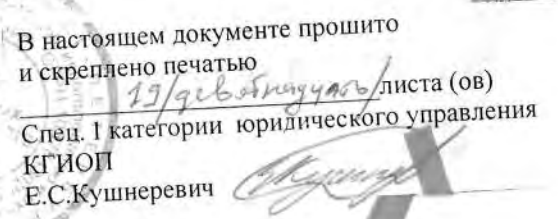 В настоящем документе прошито
и скреплено печатью
19/девятнадцать/листа (ов)
Спец. I категории юридического управления
КГИОП
Е.С.Кушнеревич